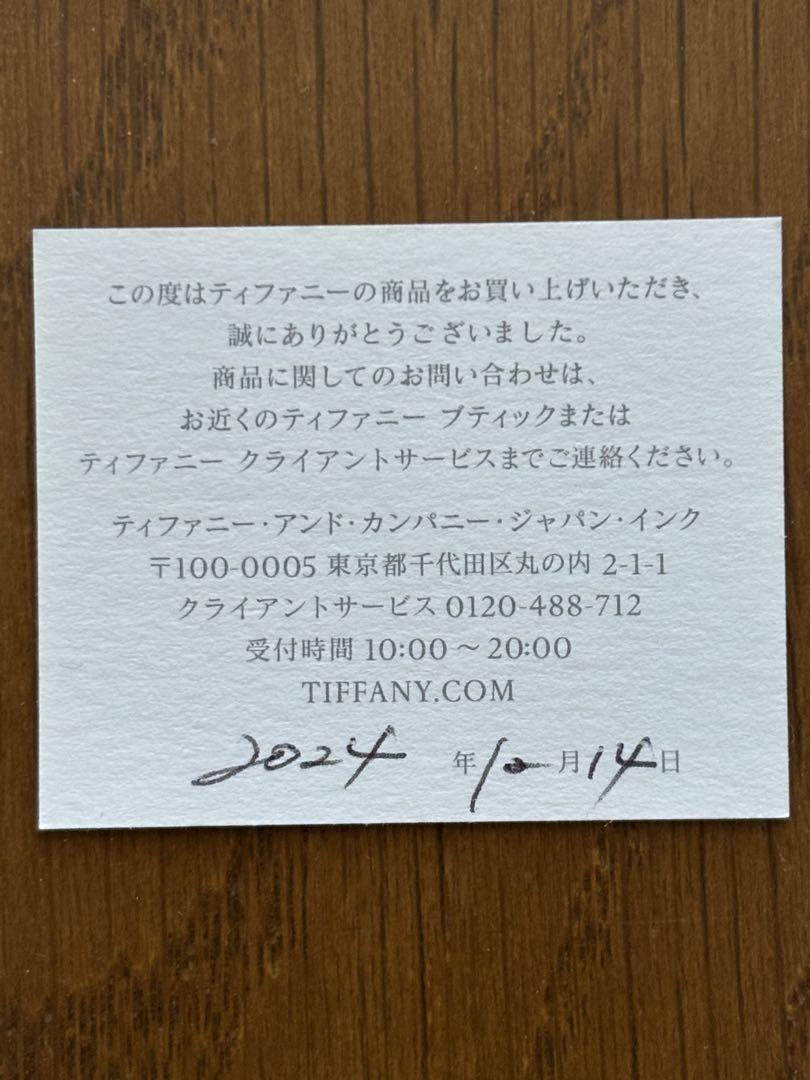 この度はティファニーの商品をお買い上げいただき、
誠にありがとうございました。
商品に関してのお問い合わせは、
お近くのティファニー ブティックまたは
ティファニー クライアントサービスまでご連絡ください。
ティファニー・アンド・カンパニー・ジャパン・インク
〒100-0005 東京都千代田区丸の内 2-1-1
クライアントサービス 0120-488-712
受付時間 10:00 ～ 20:00
TIFFANY.COM
2024 年 10 月 14 日